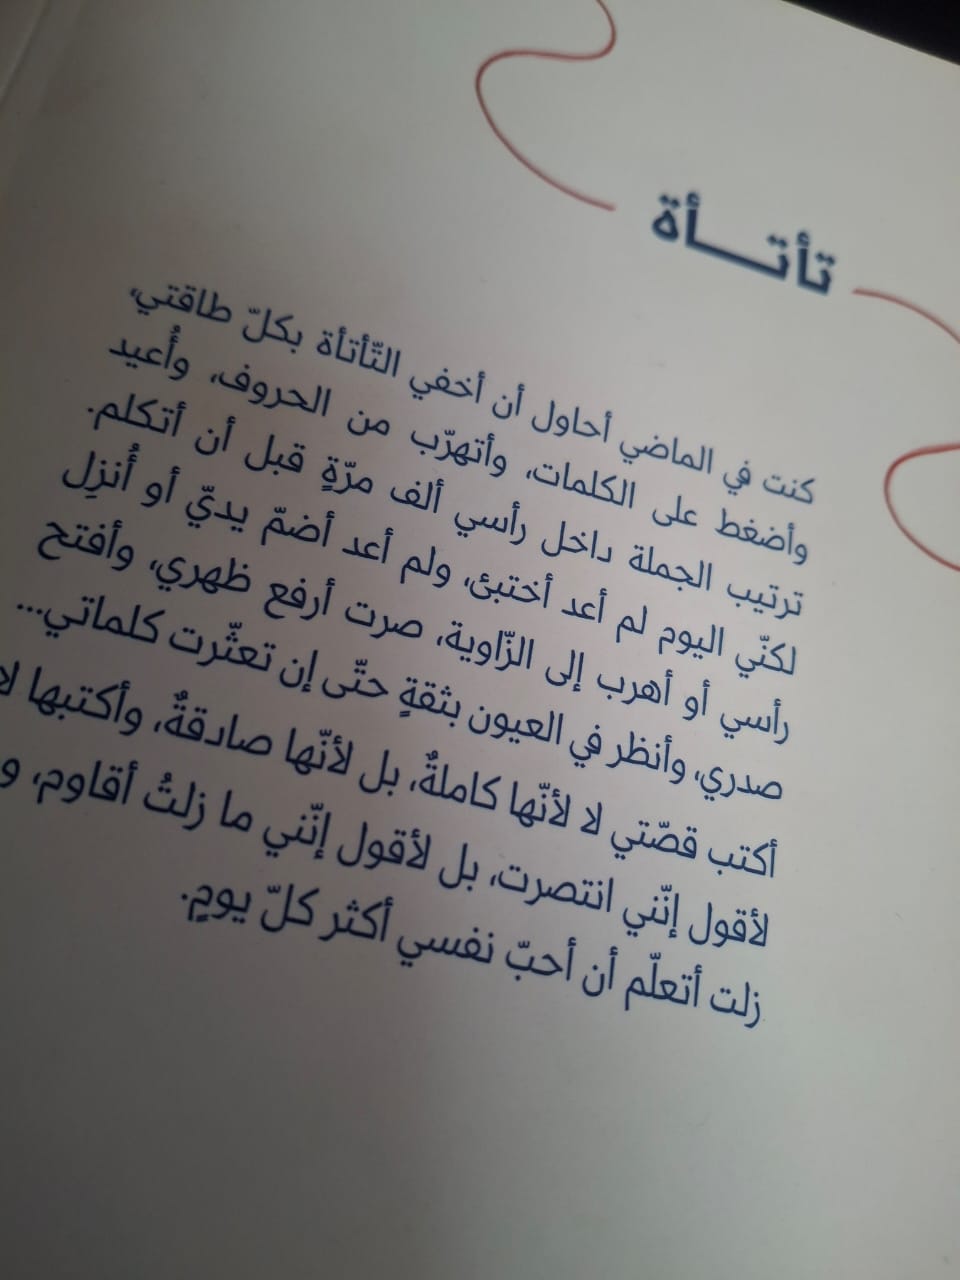 تأتـــأة
كنت في الماضي أحاول أن أخفي التّأتأة بكلّ طاقتي،
وأضغط على الكلمات، وأتهرّب من الحروف، وأُعيد
ترتيب الجملة داخل رأسي ألف مرّةٍ قبل أن أتكلم.
لكنّي اليوم لم أعد أختبئ، ولم أعد أضمّ يديّ أو أُنزِل
رأسي أو أهرب إلى الزّاوية، صرت أرفع ظهري، وأفتح
صدري، وأنظر في العيون بثقةٍ حتّى إن تعثّرت كلماتي...
أكتب قصّتي لا لأنّها كاملةٌ، بل لأنّها صادقةٌ، وأكتبها لا
لأقول إنّني انتصرت، بل لأقول إنّني ما زلتُ أقاوم، و
زلت أتعلّم أن أحبّ نفسي أكثر كلّ يومٍ.